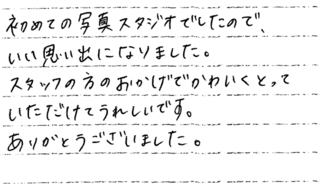 初めての写真スタジオでしたので、
いい思い出になりました。
スタッフの方のおかげでかわいくとって
いただけてうれしいです。
ありがとうございました。